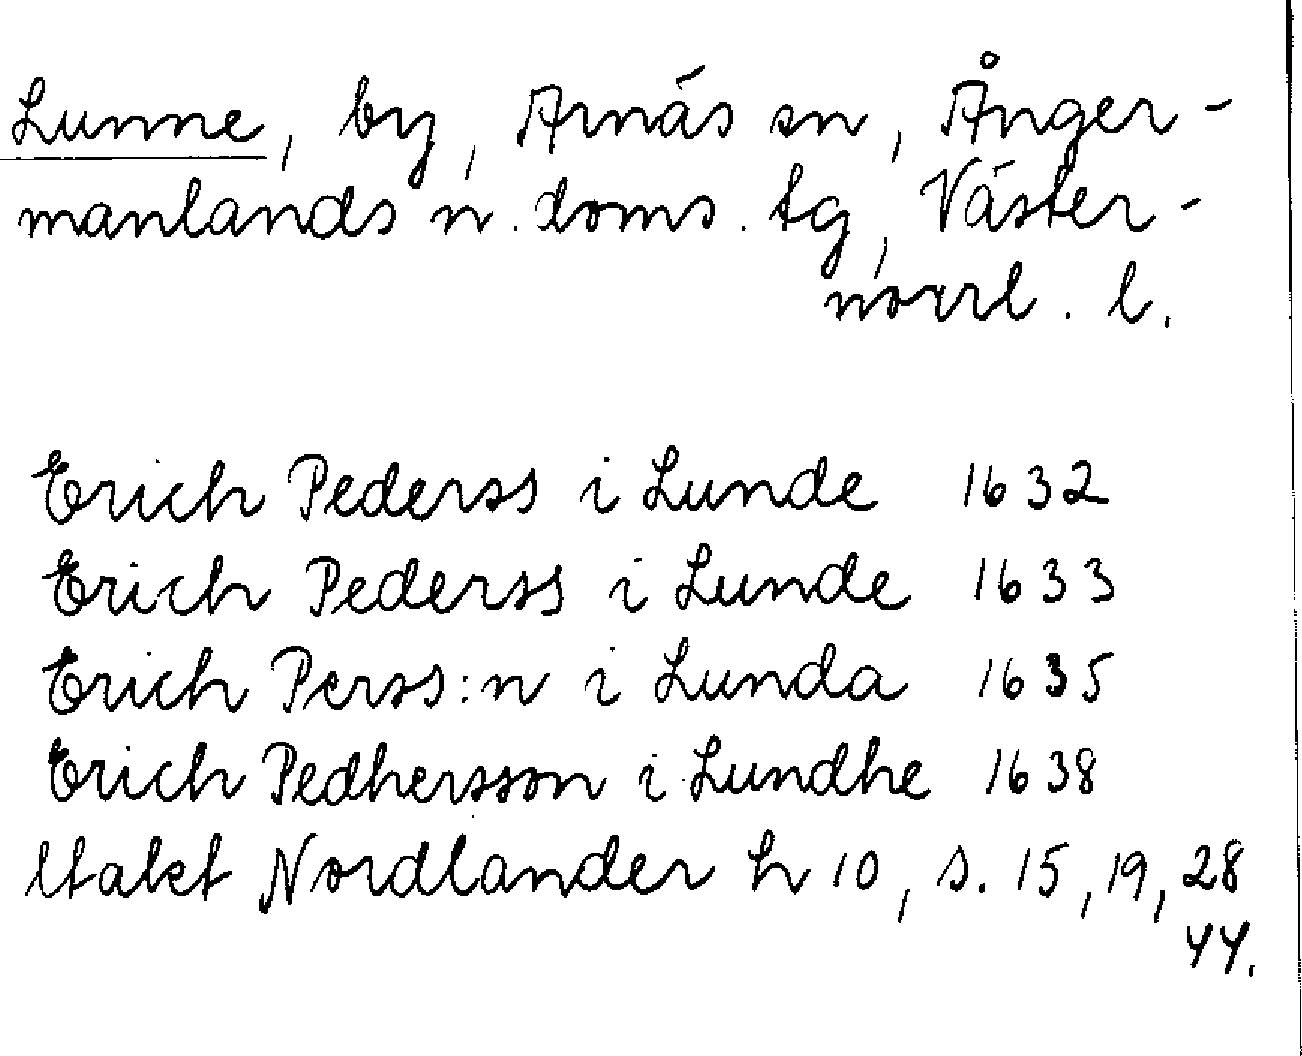 Lunne, by, Arnäs sn, Ånger-
manlands n. doms. tg, Väster-
norrl. l.
Erich Pederss i Lunde 1632
Erich Pederss i Lunde 1633
Erich Perss:n i Lunda 1635
Erich Pedhersson i Lundhe 1638
Utakt Nordlander h 10, s. 15, 19, 28
44.